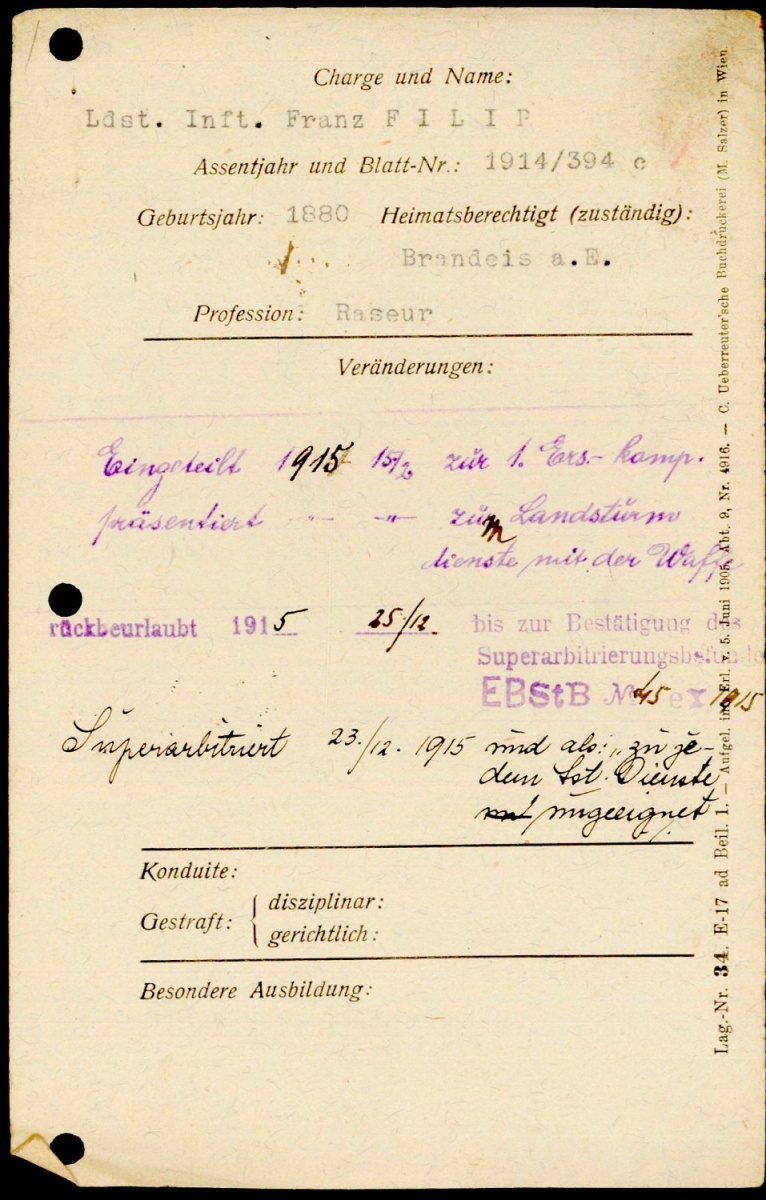 Charge und Name:
Ldst. Inft. Franz FILIP
Assentjahr und Blatt-Nr.: 1914/394 c
Geburtsjahr: 1880 Heimatsberechtigt (zuständig):
Brandeis a.E.
Profession: Raseur
Veränderungen:
Eingeteilt 1915 15/2 zur 1. Ers.- komp.
präsentiert -"- -"- zum Landsturm
dienste mit der Waffe
rückbeurlaubt 1915 25/12. bis zur Bestätigung des
Superarbitrierungsbefunde
EBStB № 45 ex 1915
Superarbitriert 23./12. 1915 und als: „zu je-
dem Lst. Dienste
ungeeignet
Konduite:
Gestraft: { disziplinar:
gerichtlich:
Besondere Ausbildung:
Lag.-Nr. 34. E-17 ad Beil. 1. — Aufgel. in Erl. v. 5. Juni 1905, Abt. 9, Nr. 4916. — C. Ueberreuter'sche Buchdruckerei (M. Salzer) in Wien.